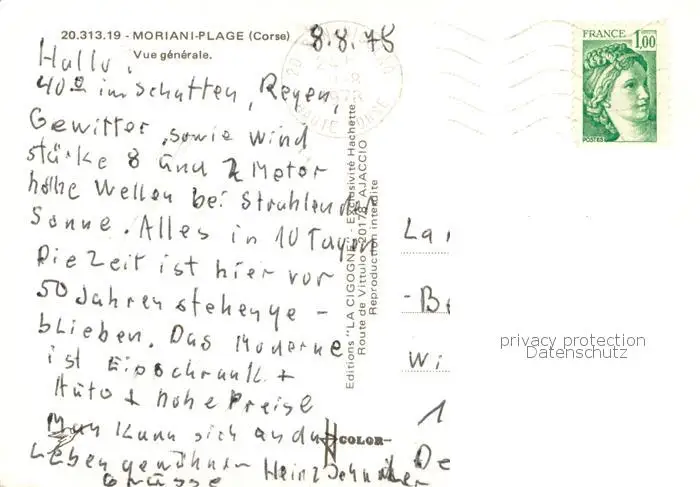 20.313.19 - MORIANI-PLAGE (Corse)
Vue générale.
8.8.78
FRANCE 1,00
POSTES
Hallo,
40° im Schatten, Regen,
Gewitter, sowie Wind
stärke 8 und 2 Meter
hohe Wellen bei Strahlender
Sonne. Alles in 10 Tagen
Die Zeit ist hier vor
50 Jahren stehenge -
blieben. Das Moderne
ist Eisschrank +
Auto + hohe Preise
Man kann sich an das
Leben gewöhnen
Grüsse Heinz
Editions "LA CIGOGNE" - Exclusivité Hachette
Route de Vittulo - 20178 AJACCIO
Reproduction interdite
COLOR
La
- Be
Wi
1
De
privacy protection
Datenschutz